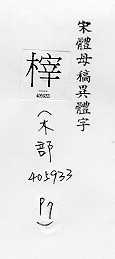 宋體母稿異體字
榟
405933
（木部
405933
P7）